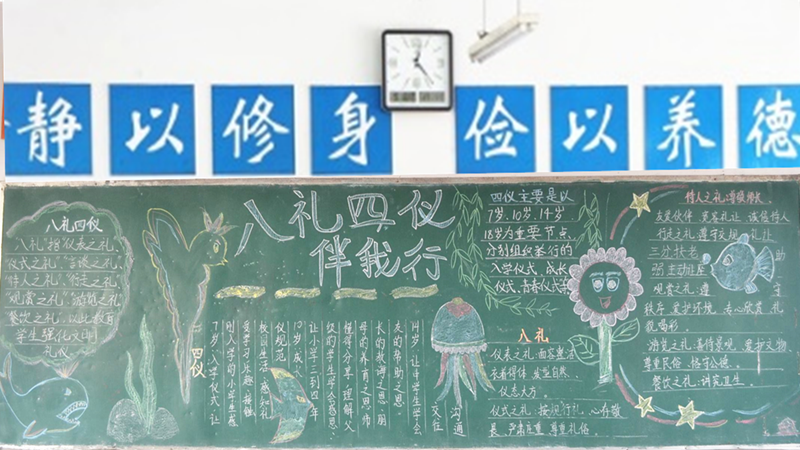 静以修身
俭以养德
八礼四仪
伴我行
八礼四仪
八礼指仪表之礼、
仪式之礼、言谈之礼、
待人之礼、行走之礼
观赏之礼、游览之礼
餐饮之礼,以此教育
学生强化文明
礼仪
四仪
7岁入学仪式,让
刚入学的小学生感
受学习乐趣、接触
校园生活、感知礼
仪规范
10岁成长
让小学三到四年
级的学生学会感恩、
懂得分享,理解父
母的养育之恩、师
长的教诲之恩、朋
友的帮助之恩.
14岁:让中学生学会
沟通
交往
四仪主要是以
7岁、10岁、14岁
18岁为重要节点,
分别组织举行的
入学仪式、成长
仪式、青春仪式
八礼
仪表之礼:面容整洁
衣着得体、发型自然
仪态大方.
仪式之礼:按规行礼、心存敬
畏、严肃庄重、尊重礼俗.
待人之礼:遵循
友爱伙伴、宽容礼让、诚信待人
行走之礼:遵守交规、礼让
三分、扶老助
弱、主动让座
观赏之礼:遵守
秩序、爱护环境、专心欣赏、礼
貌喝彩.
游览之礼:善待景观、爱护文物
尊重民俗、恪守公德.
餐饮之礼:讲究卫生.